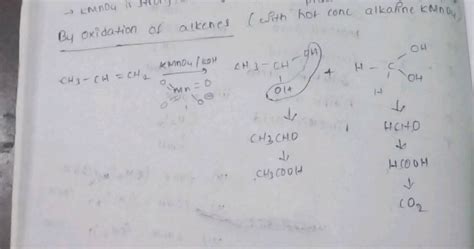 → KMnO4 is
By oxidation of alkenes (with hot conc alkaline KMnO4)
CH3-CH=CH2 KMnO4/KOH CH3-CH OH OH + H-C OH OH H
O Mn=O O O
CH3CHO HCHO
↓ ↓
CH3COOH HCOOH
↓
CO2